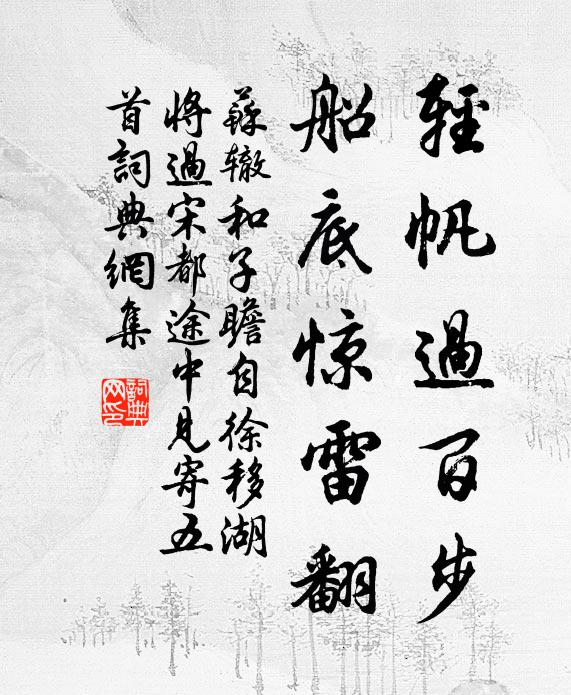 輕帆過百步
船底惊雷翻
蘇辙和子瞻自徐移湖
將過宋都途中見寄五
首詞典網集
詞典网印